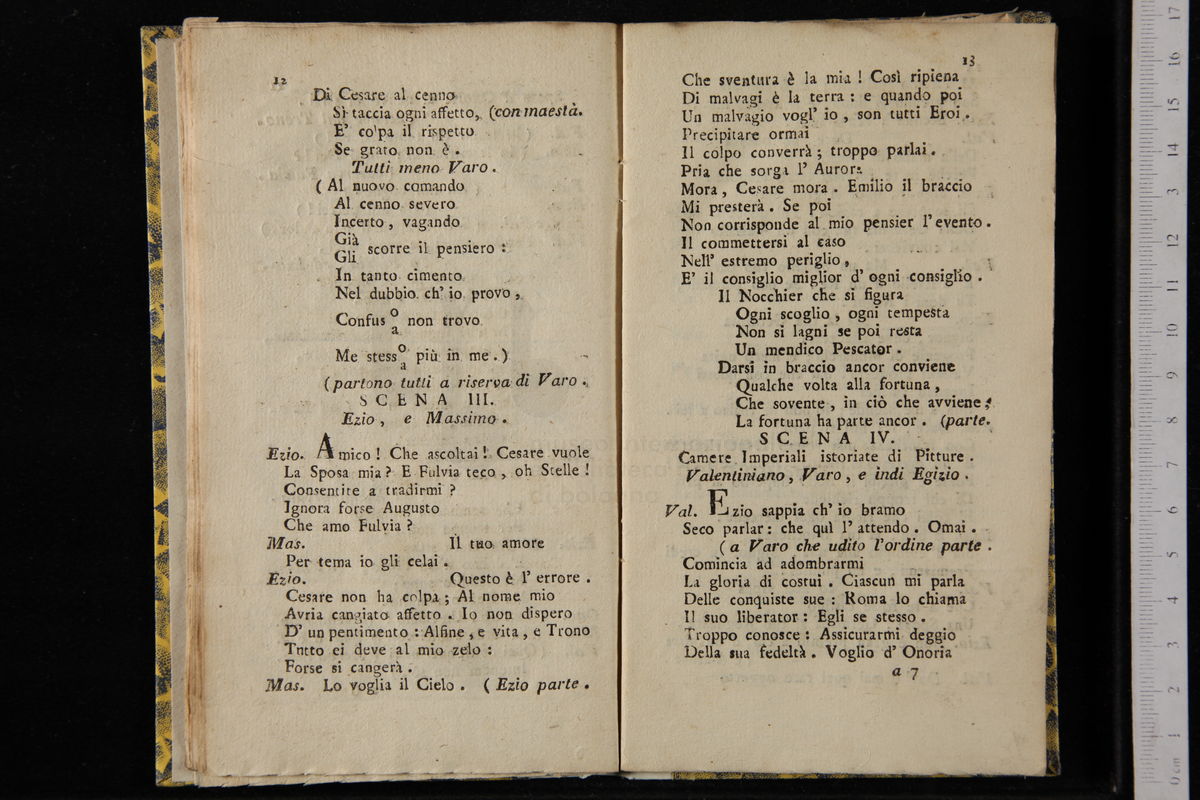 12
Di Cesare al cenno
Si taccia ogni affetto, (con maestà.
E' colpa il rispetto
Se grato non è .
Tutti meno Varo .
( Al nuovo comando
Al cenno severo
Incerto , vagando
Già
Gli scorre il pensiero :
In tanto cimento
Nel dubbio ch' io provo ,
Confus o
a non trovo
Me stess o
a più in me . )
( partono tutti a riserva di Varo .
SCENA III.
Ezio , e Massimo .
Ezio. Amico ! Che ascoltai ! Cesare vuole
La Sposa mia ? E Fulvia teco , oh Stelle !
Consentite a tradirmi ?
Ignora forse Augusto
Che amo Fulvia ?
Mas. Il tuo amore
Per tema io gli celai .
Ezio. Questo è l' errore .
Cesare non ha colpa ; Al nome mio
Avria cangiato affetto . Io non dispero
D' un pentimento : Alfine , e vita , e Trono
Tutto ei deve al mio zelo :
Forse si cangerà .
Mas. Lo voglia il Cielo . ( Ezio parte .
13
Che sventura è la mia ! Così ripiena
Di malvagi è la terra : e quando poi
Un malvagio vogl' io , son tutti Eroi .
Precipitare ormai
Il colpo converrà ; troppo parlai .
Pria che sorga l' Aurora
Mora , Cesare mora . Emilio il braccio
Mi presterà . Se poi
Non corrisponde al mio pensier l' evento .
Il commettersi al caso
Nell' estremo periglio ,
E' il consiglio miglior d' ogni consiglio .
Il Nocchier che si figura
Ogni scoglio , ogni tempesta
Non si lagni se poi resta
Un mendico Pescator .
Darsi in braccio ancor conviene
Qualche volta alla fortuna ,
Che sovente , in ciò che avviene ;
La fortuna ha parte ancor . (parte.
SCENA IV.
Camere Imperiali istoriate di Pitture .
Valentiniano , Varo , e indi Egizio .
Val. Ezio sappia ch' io bramo
Seco parlar : che quì l' attendo . Omai .
( a Varo che udito l'ordine parte .
Comincia ad adombrarmi
La gloria di costui . Ciascun mi parla
Delle conquiste sue : Roma lo chiama
Il suo liberator : Egli se stesso .
Troppo conosce : Assicurarmi deggio
Della sua fedeltà . Voglio d' Onoria
a 7